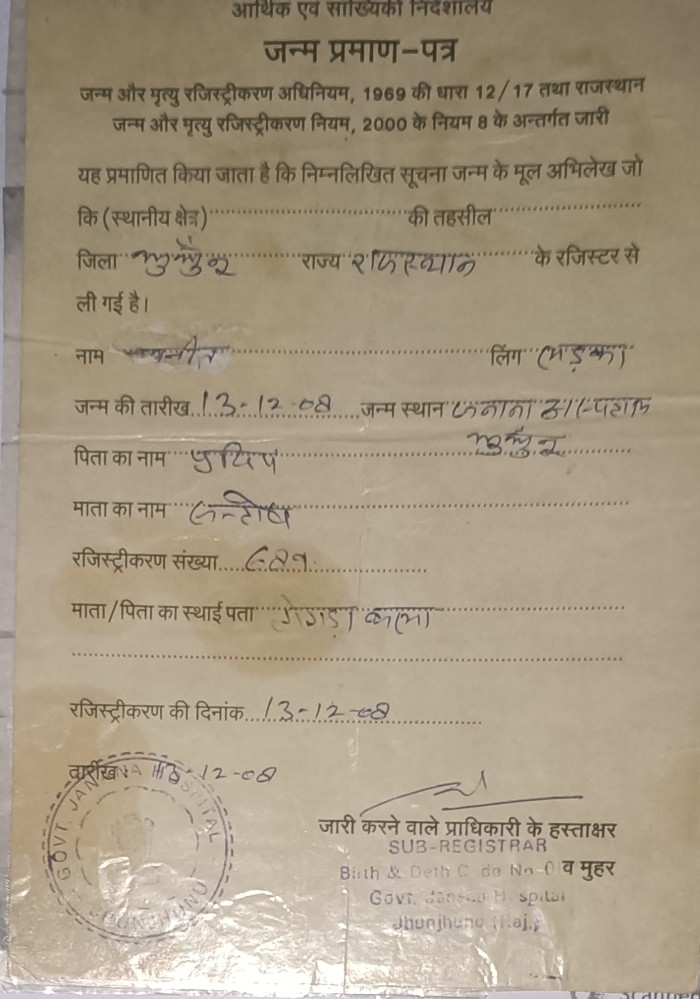 आर्थिक एवं सांख्यिकी निदेशालय
जन्म प्रमाण-पत्र
जन्म और मृत्यु रजिस्ट्रीकरण अधिनियम, 1969 की धारा 12/17 तथा राजस्थान
जन्म और मृत्यु रजिस्ट्रीकरण नियम, 2000 के नियम 8 के अन्तर्गत जारी
यह प्रमाणित किया जाता है कि निम्नलिखित सूचना जन्म के मूल अभिलेख जो
कि (स्थानीय क्षेत्र) की तहसील
जिला झुन्झुनू राज्य राजस्थान के रजिस्टर से
ली गई है।
नाम लिंग लड़का
जन्म की तारीख 13-12-08 जन्म स्थान जनाना अस्पताल
झुन्झुनू
पिता का नाम
माता का नाम सन्तोष
रजिस्ट्रीकरण संख्या
माता/पिता का स्थाई पता
रजिस्ट्रीकरण की दिनांक 13-12-08
तारीख 13-12-08
GOVT. JANANA HOSPITAL
JHUNJHUNU
जारी करने वाले प्राधिकारी के हस्ताक्षर
SUB-REGISTRAR
व मुहर
Birth & Deth
Govt. Hospital
Jhunjhunu (Raj.)